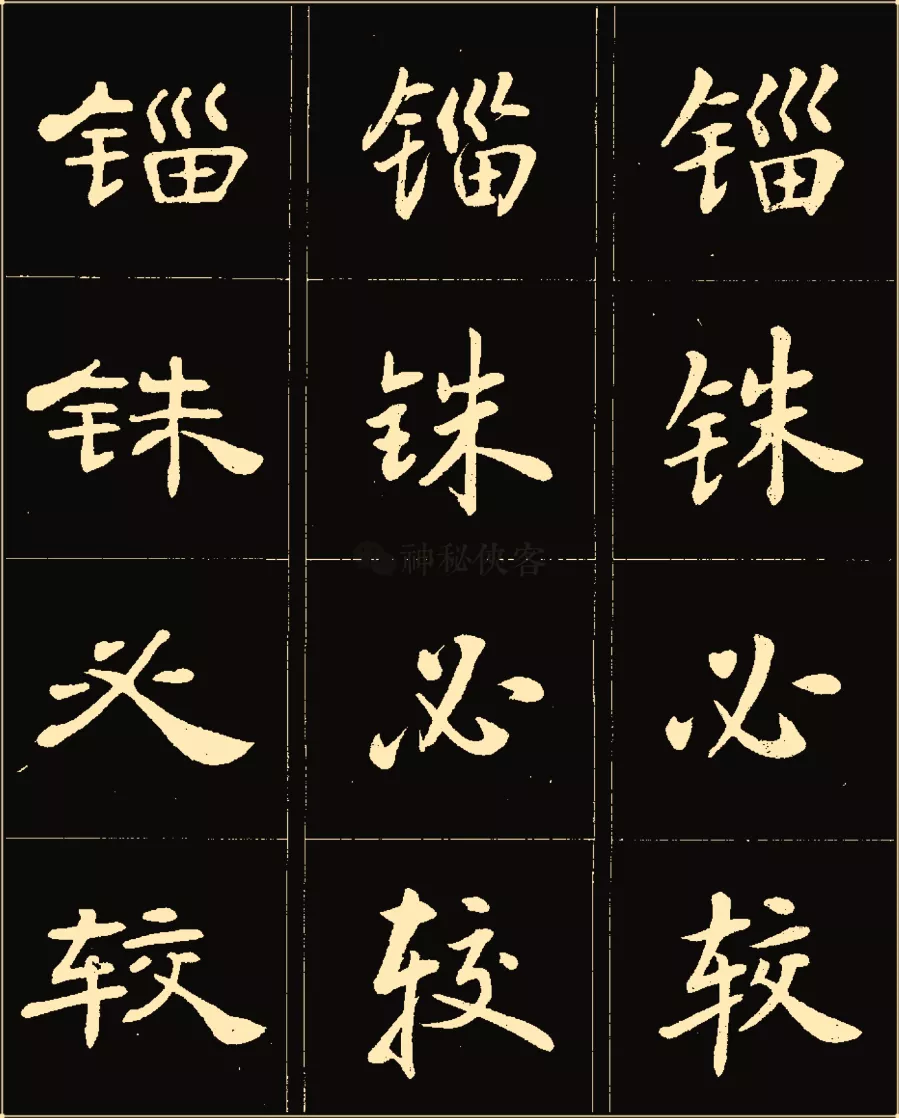 锱 锱 锱
铢 铢 铢
必 必 必
较 较 较
神秘侠客